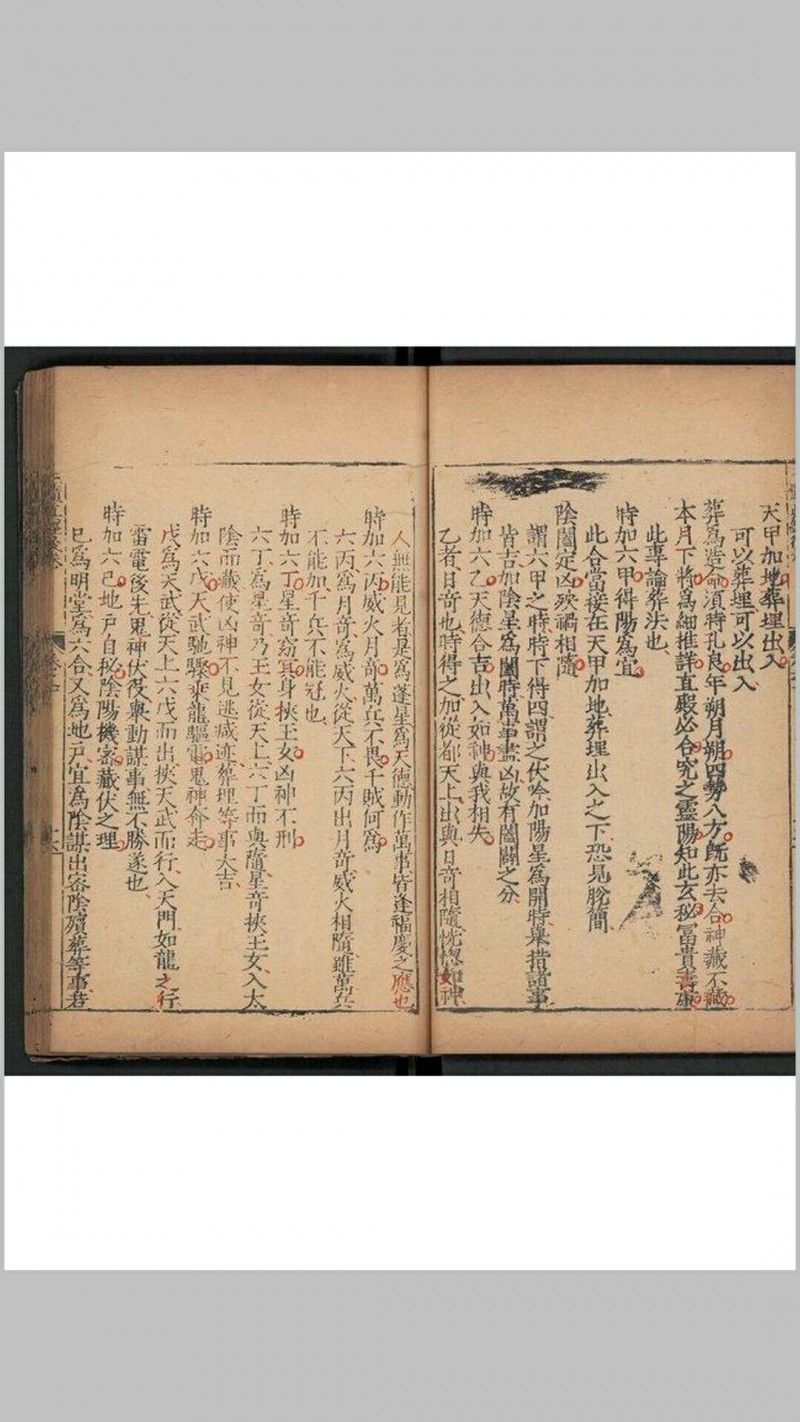 天甲加地葬埋出入
可以葬埋可以出入
葬為造命須特孔良年朔月朔四勢八方既亦去合神藏不藏
本月下將為細推詳直殿必合究之靈陽知此玄秘富貴壽
此專論葬法也
時加六甲得陽為宜
此合當接在天甲加地葬埋出入之下恐見脫簡
陰闔定凶殃禍相隨
謂六甲之時時下得四謂之伏吟加陽星為開時舉措諸事
皆吉加陰星為闔時萬事盡凶故有闔闢之分
時加六乙天德合吉出入如神與我相失
乙者日奇也時得之加從都天上出與日奇相隨恍惚如神
人無能見者是為蓬星為天德動作萬事皆逢福慶之應也
時加六丙威火月奇萬兵不畏千賊何為
六丙為月奇為威火從天下六丙出月奇威火相隨雖萬兵
不能加千兵不能冠也
時加六丁星奇窈冥身挾王女凶神不刑
六丁為星奇乃王女從天上六丁而與隨星奇挾王女入太
陰而藏使凶神不見逃減迹葬埋等事大吉
時加六戊天武馳驟乘龍驅電鬼神奔走
戊為天武從天上六戊而出挾天武而行入天門如龍之行
雷電後先鬼神伏役舉動謀事無不勝遂也
時加六己地戶自秘陰陽機密藏伏之理
己為明堂為六合又為地戶宜為陰謀出密陰殯葬等事若